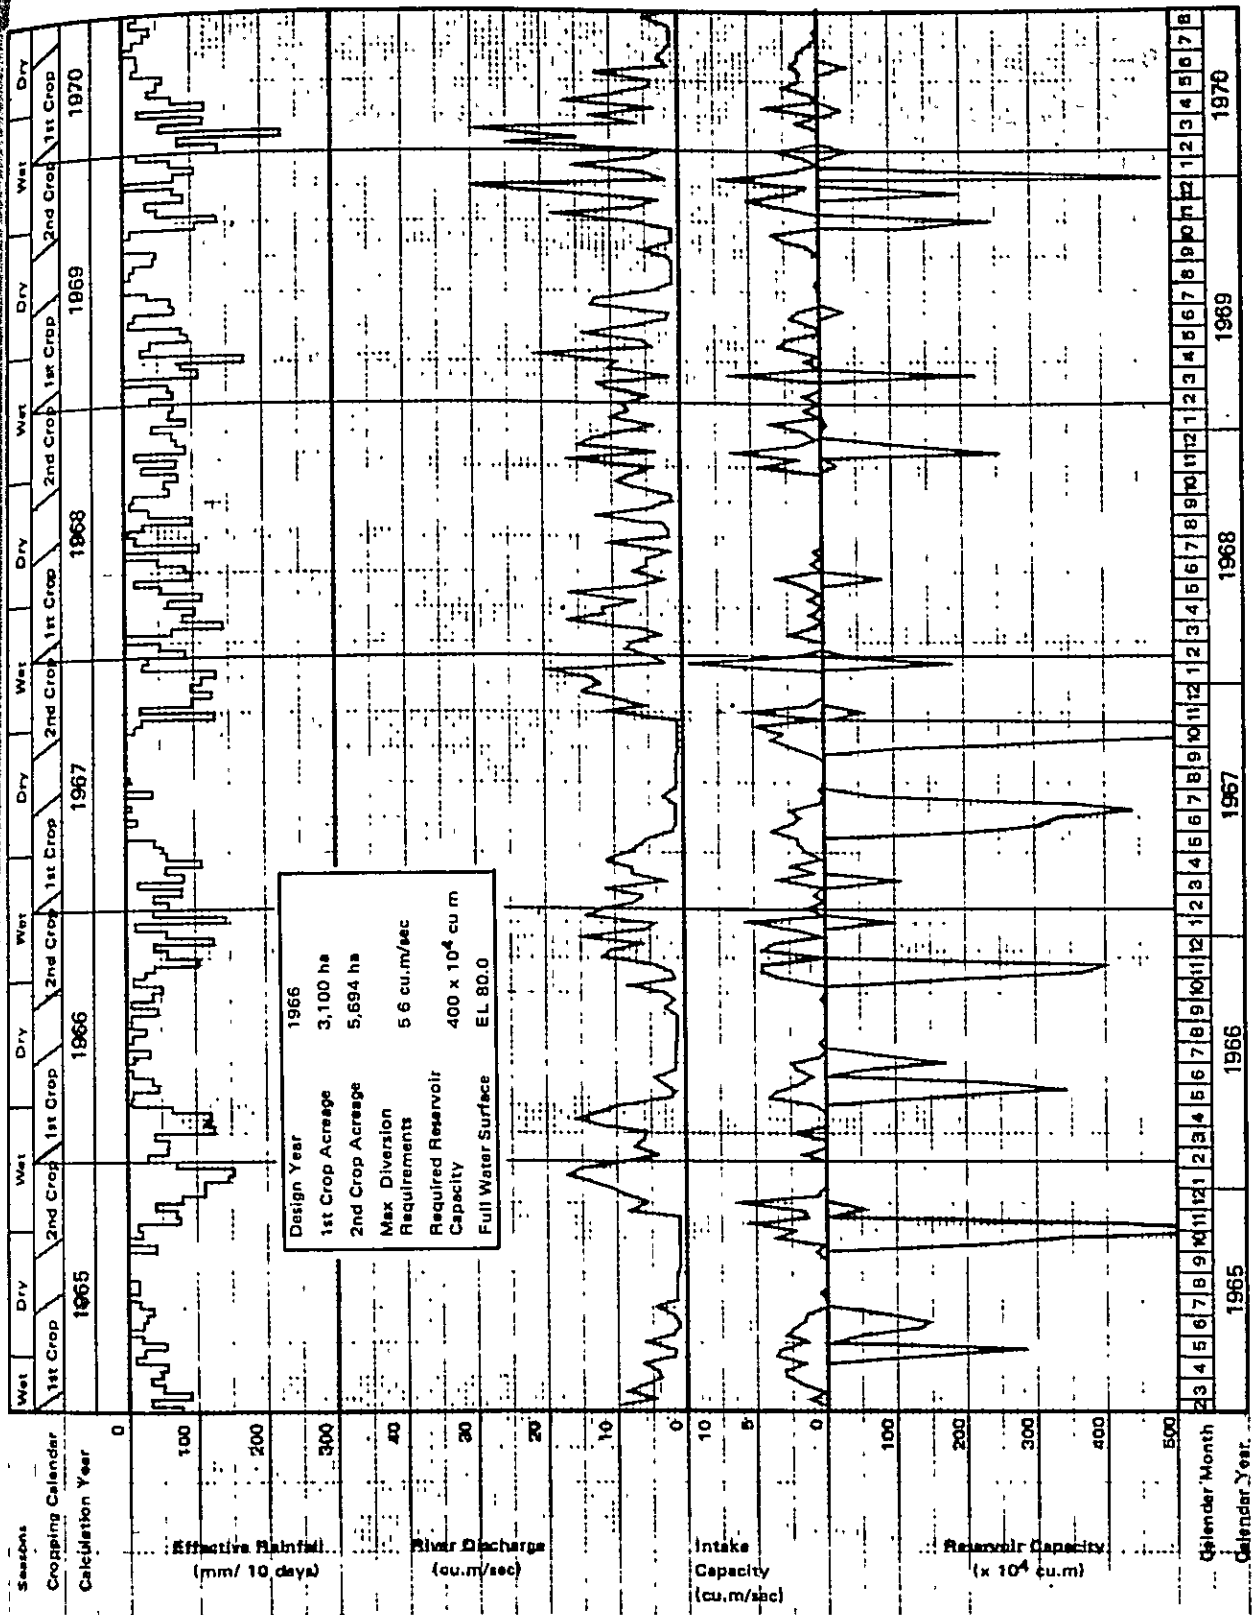 Seasons
Wet Dry Wet Dry Wet Dry Wet Dry Wet Dry Wet Dry
Cropping Calendar
1st Crop 2nd Crop 1st Crop 2nd Crop 1st Crop 2nd Crop 1st Crop 2nd Crop 1st Crop 2nd Crop 1st Crop
Calculation Year
1965 1966 1967 1968 1969 1970
0
100
200
300
Effective Rainfall
(mm/ 10 days)
40
30
20
10
0
River Discharge
(cu.m/sec)
10
5
0
Intake
Capacity
(cu.m/sec)
100
200
300
400
500
Reservoir Capacity
(x 10⁴ cu.m)
Design Year 1966
1st Crop Acreage 3,100 ha
2nd Crop Acreage 5,694 ha
Max Diversion
Requirements 5 6 cu.m/sec
Required Reservoir
Capacity 400 x 10⁴ cu m
Full Water Surface EL 80.0
Calender Month
2 3 4 5 6 7 8 9 10 11 12 1 2 3 4 5 6 7 8 9 10 11 12 1 2 3 4 5 6 7 8 9 10 11 12 1 2 3 4 5 6 7 8 9 10 11 12 1 2 3 4 5 6 7 8 9 10 11 12 1 2 3 4 5 6 7 8
Calendar Year.
1965 1966 1967 1968 1969 1970